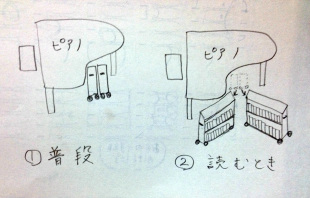 ピアノ
ピアノ
①普段
②読むとき